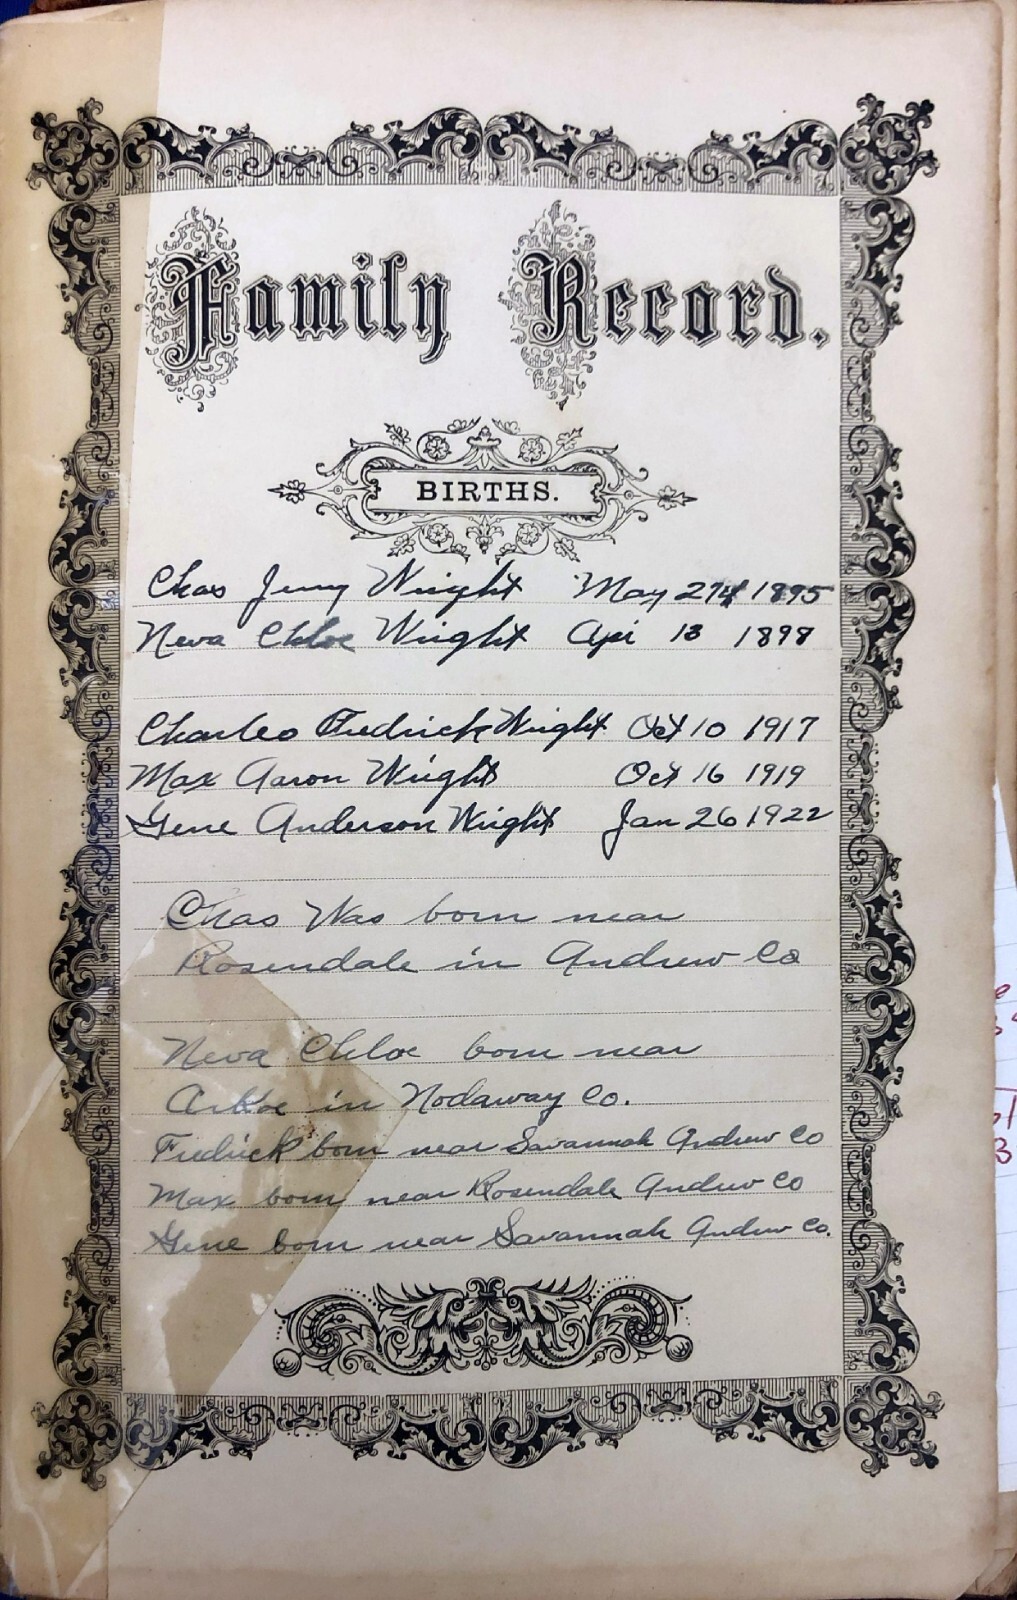 Family Record.
BIRTHS.
Chas Jerry Wright May 27 1895
Neva Chloe Wright Apr 13 1898
Charles Fredrick Wright Oct 10 1917
Max Aaron Wright Oct 16 1919
Gene Anderson Wright Jan 26 1922
Chas Was born near
Rosendale in Andrew Co
Neva Chloe born near
Arkoe in Nodaway Co.
Fredrick born near Savannah Andrew Co
Max born near Rosendale Andrew Co
Gene born near Savannah Andrew Co.